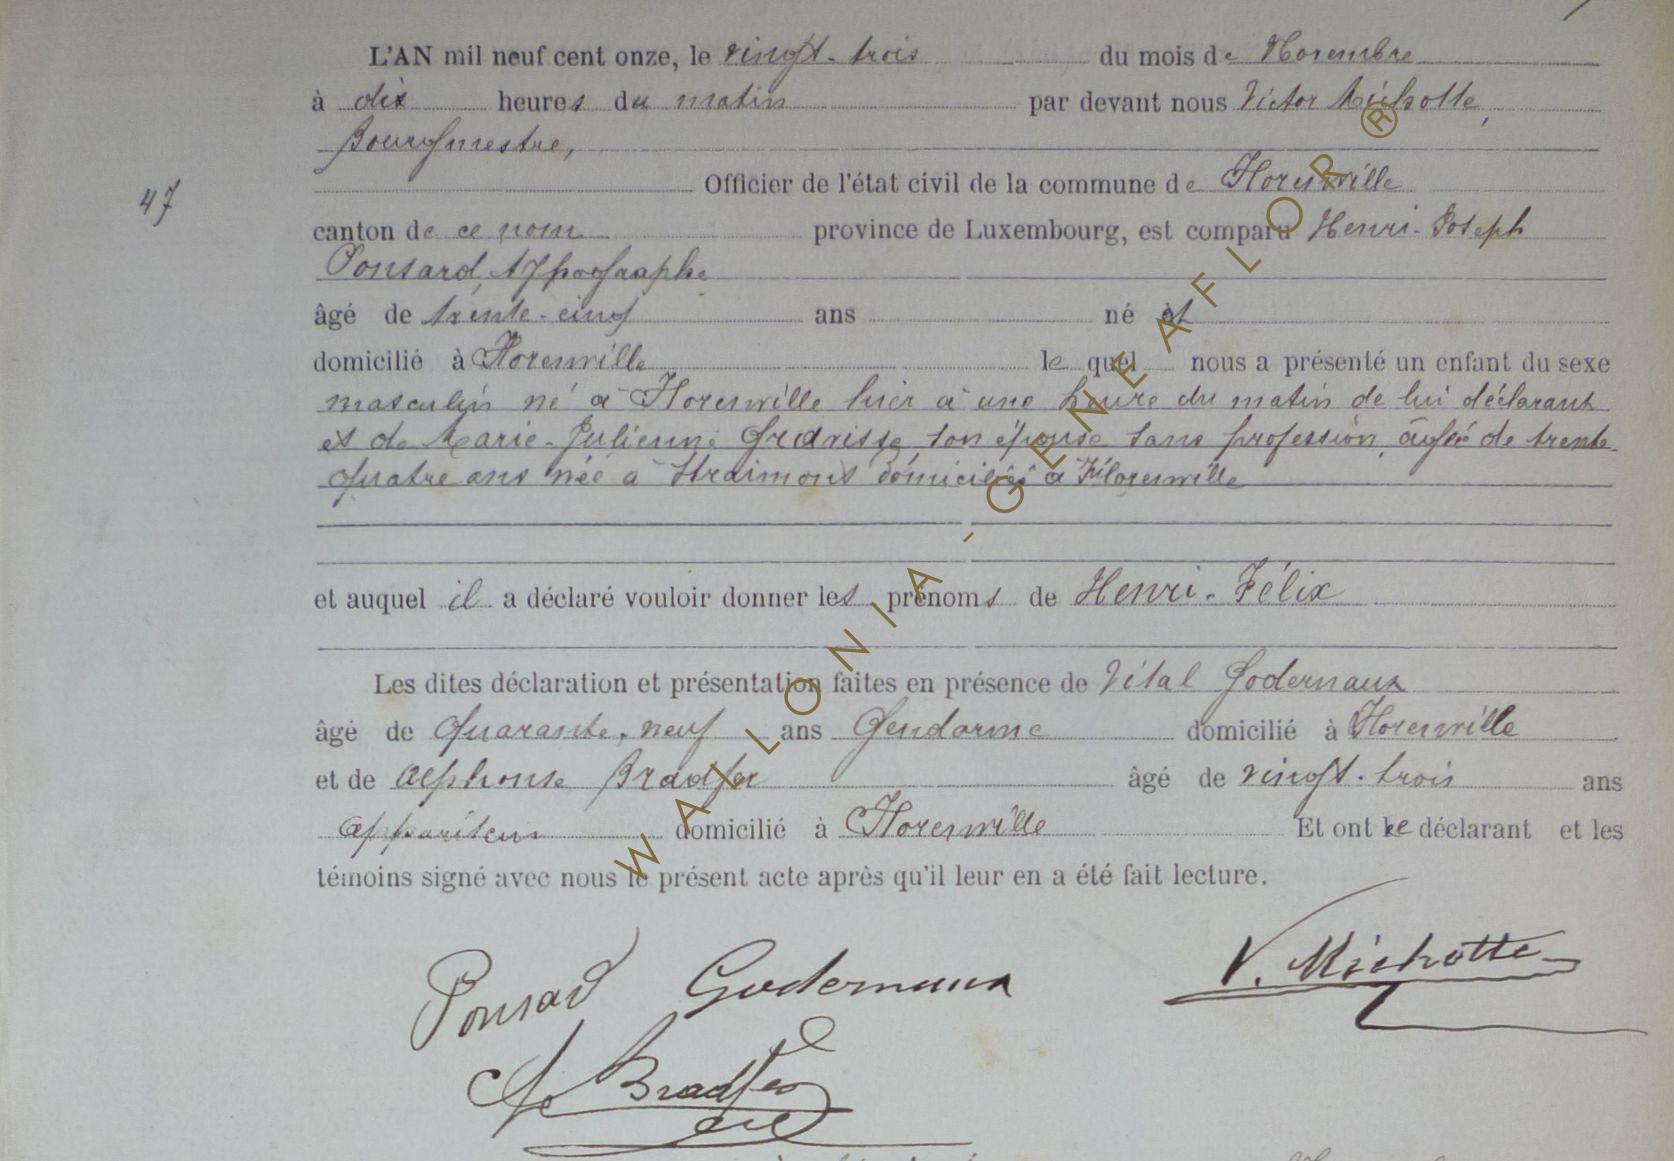 L'AN mil neuf cent onze, le vingt-trois du mois de Novembre
à dix heures du matin par devant nous Victor Michotte,
Bourgmestre,
Officier de l'état civil de la commune de Florenville
47
canton de ce nom province de Luxembourg, est comparu Henri-Joseph
Ponsard, typographe
âgé de trente-cinq ans né et
domicilié à Florenville lequel nous a présenté un enfant du sexe
masculin né à Florenville hier à une heure du matin de lui déclarant
et de Marie-Julienne son épouse sans profession, âgée de trente-
quatre ans née à Straimont domiciliés à Florenville
et auquel il a déclaré vouloir donner les prénoms de Henri-Félix
Les dites déclaration et présentation faites en présence de Vital Godernaux
âgé de quarante-neuf ans Gendarme domicilié à Florenville
et de Alphonse Bradfer âgé de vingt-trois ans
appariteur domicilié à Florenville Et ont le déclarant et les
témoins signé avec nous le présent acte après qu'il leur en a été fait lecture.
Ponsard Godernaux V. Michotte
A. Bradfer
WALLONIA - GENEAFLOR ®